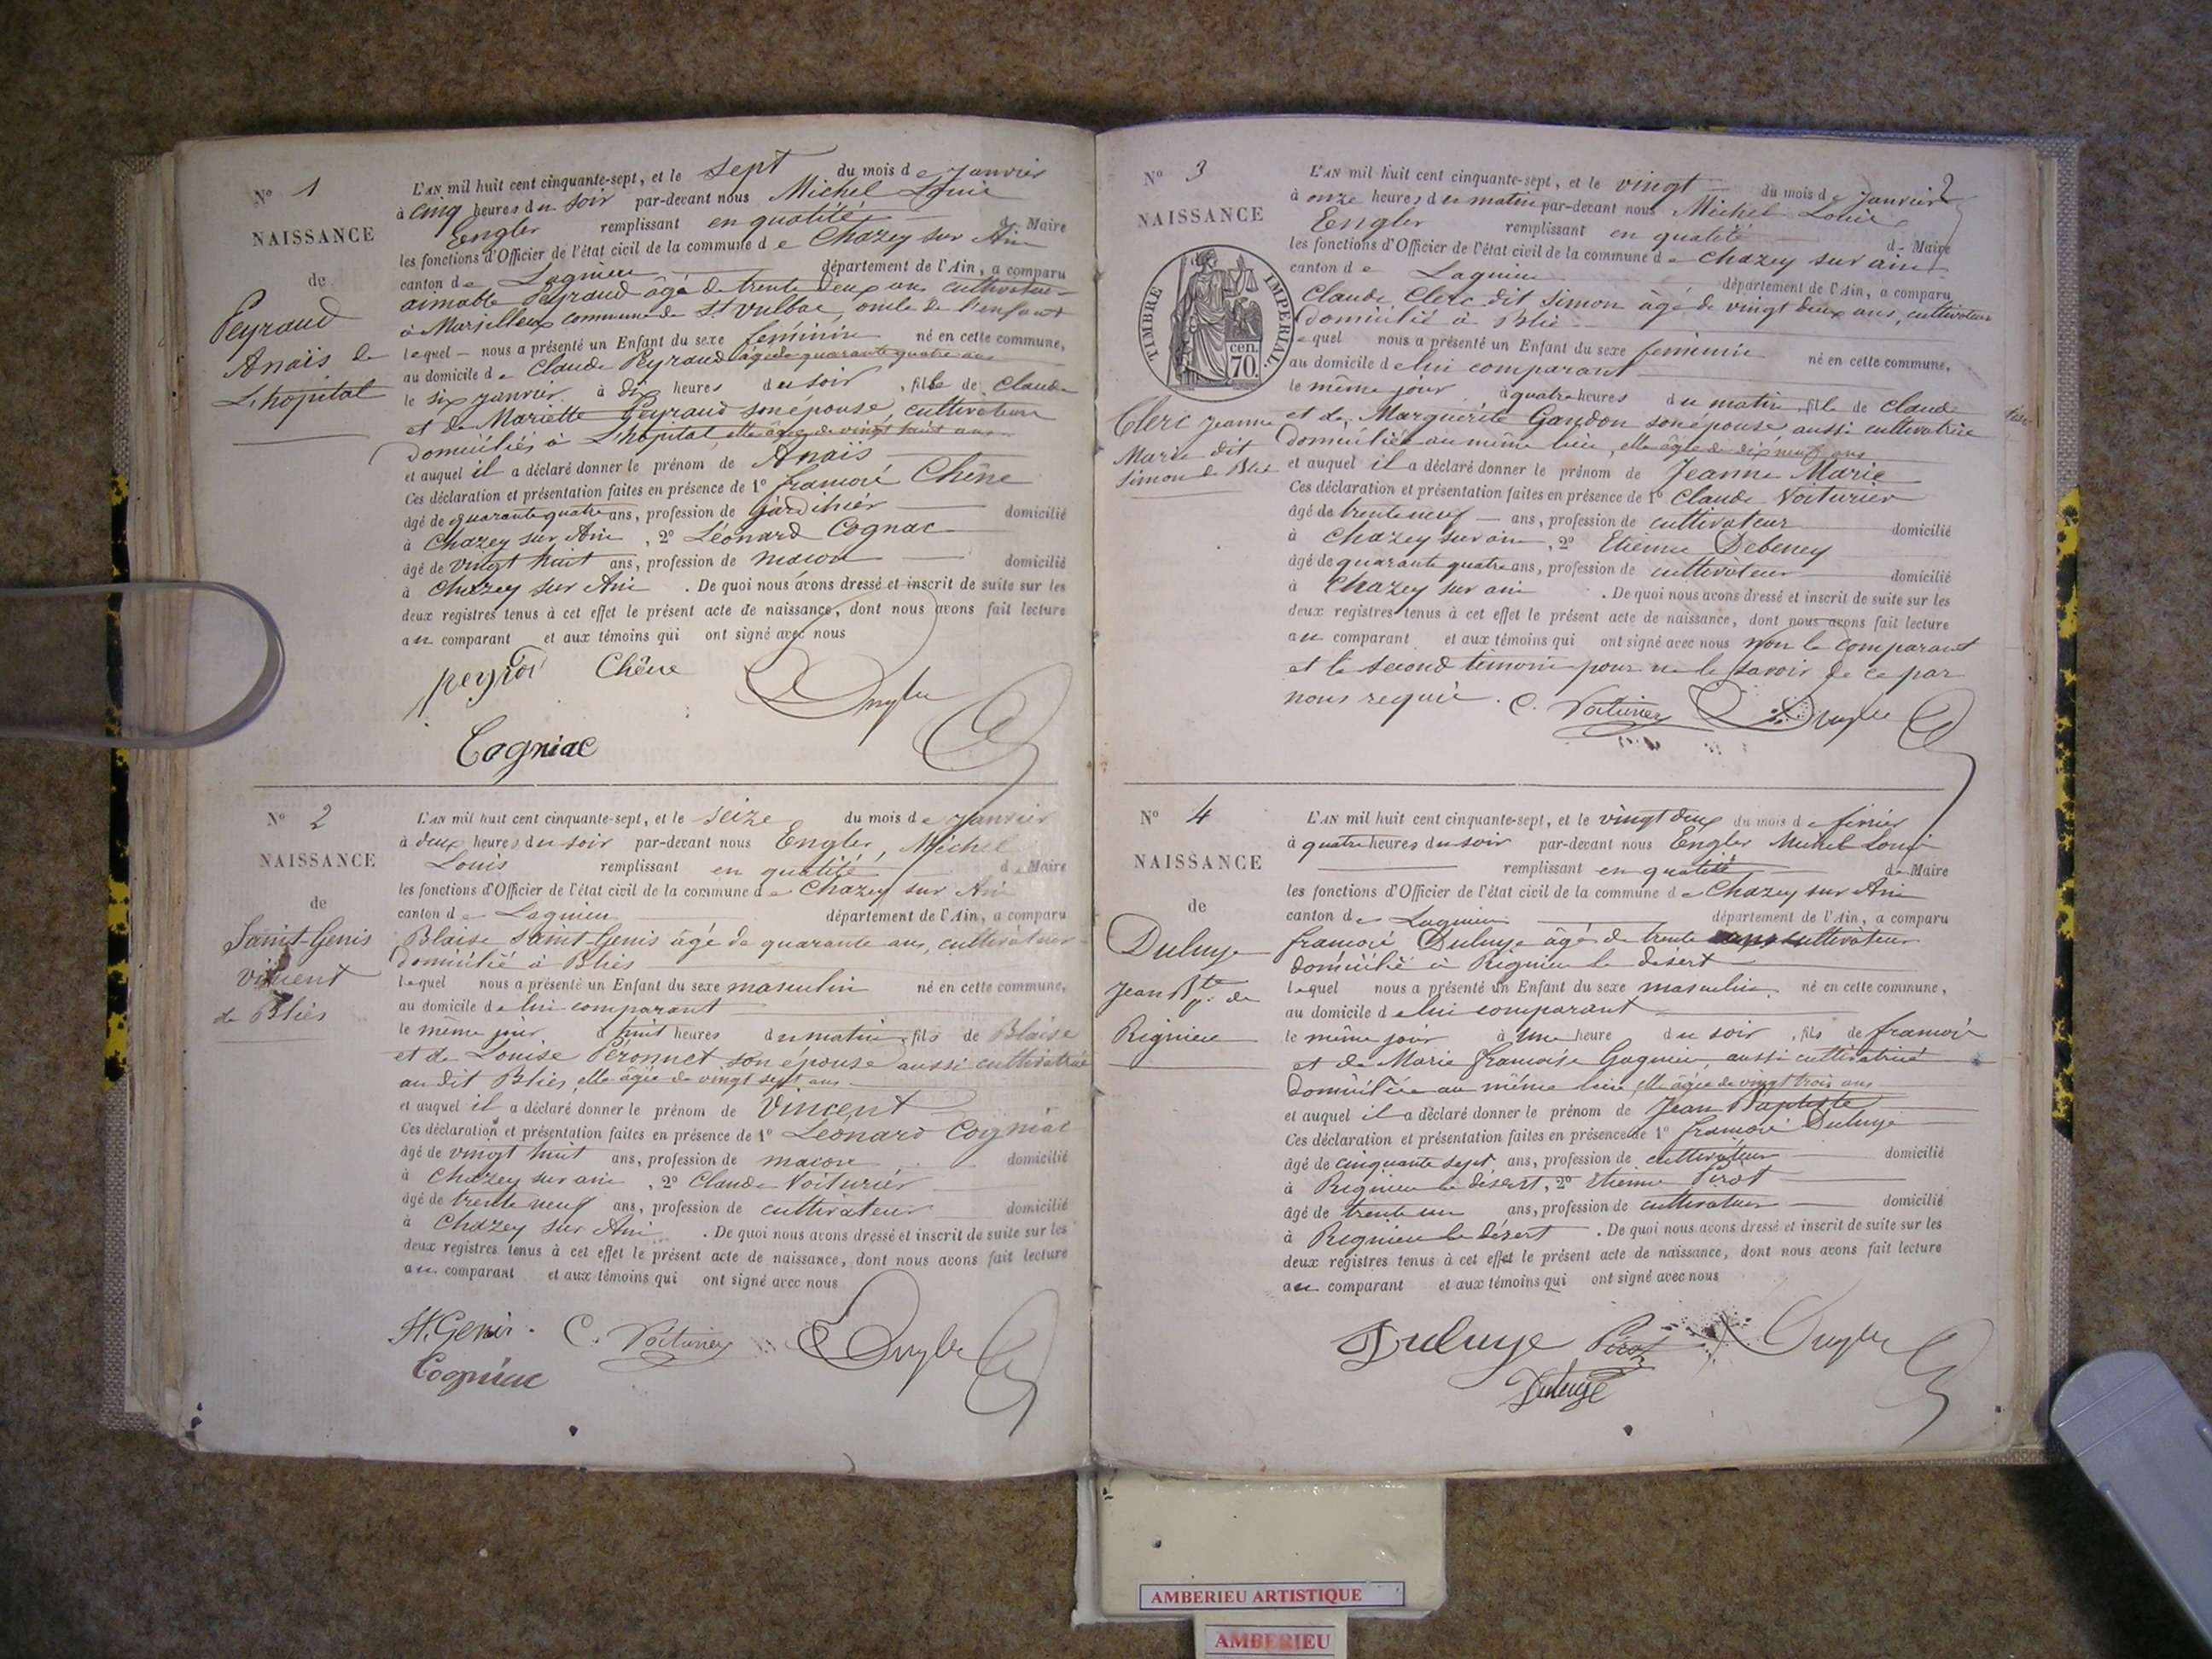 N° 1
NAISSANCE
de
Peyraud
Anaïs de
L'hopital
L'AN mil huit cent cinquante-sept, et le sept du mois de Janvier
à cinq heures du soir par-devant nous Michel Louis
Engler remplissant en qualité de Maire
les fonctions d'Officier de l'état civil de la commune de Chazey sur Ain
canton de Lagnieu département de l'Ain, a comparu
aimable Peyraud âgé de trente deux ans cultivateur
à Marsilleux commune de St Vulbas, oncle de l'enfant
lequel nous a présenté un Enfant du sexe feminin né en cette commune,
au domicile de Claude Peyraud âgé de quarante quatre ans
le six janvier à dix heures du soir, fille de Claude
et de Mariette Peyraud son épouse, cultivateurs
domiciliés à L'hopital elle âgée de vingt huit ans
et auquel il a déclaré donner le prénom de Anaïs
Ces déclaration et présentation faites en présence de 1° francois Chêne
âgé de quarante quatre ans, profession de jardinier domicilié
à Chazey sur Ain, 2° Léonard Cognac
âgé de vingt huit ans, profession de macon domicilié
à Chazey sur Ain. De quoi nous avons dressé et inscrit de suite sur les
deux registres tenus à cet effet le présent acte de naissance, dont nous avons fait lecture
au comparant et aux témoins qui ont signé avec nous
Chêne
Cogniac
N° 2
NAISSANCE
de
Saint-Genis
vincent
de Bliès
L'AN mil huit cent cinquante-sept, et le seize du mois de Janvier
à deux heures du soir par-devant nous Engler, Michel
Louis remplissant en qualité de Maire
les fonctions d'Officier de l'état civil de la commune de Chazey sur Ain
canton de Lagnieu département de l'Ain, a comparu
Blaise Saint-Genis âgé de quarante ans, cultivateur
domicilié à Bliès
lequel nous a présenté un Enfant du sexe masculin né en cette commune,
au domicile de lui comparant
le même jour à huit heures du matin, fils de Blaise
et de Louise Péronnet son épouse aussi cultivatrice
au dit Bliès, elle âgée de vingt sept ans
et auquel il a déclaré donner le prénom de Vincent
Ces déclaration et présentation faites en présence de 1° Léonard Cogniac
âgé de vingt huit ans, profession de macon domicilié
à Chazey sur ain, 2° Claude Voiturier
âgé de trente neuf ans, profession de cultivateur domicilié
à Chazey sur Ain. De quoi nous avons dressé et inscrit de suite sur les
deux registres tenus à cet effet le présent acte de naissance, dont nous avons fait lecture
au comparant et aux témoins qui ont signé avec nous
St. Genis. C. Voiturier
Cogniac
2
N° 3
NAISSANCE
TIMBRE IMPERIAL.
cen. 70.
Clerc Jeanne
Marie dit
Simon de Bliè
L'AN mil huit cent cinquante-sept, et le vingt du mois de Janvier
à onze heures du matin par-devant nous Michel Louis
Engler remplissant en qualité de Maire
les fonctions d'Officier de l'état civil de la commune de Chazey sur ain
canton de Lagnieu département de l'Ain, a comparu
Claude Clerc dit Simon âgé de vingt deux ans, cultivateur
domicilié à Bliè
lequel nous a présenté un Enfant du sexe feminin né en cette commune,
au domicile de lui comparant
le même jour à quatre heures du matin, fille de Claude
et de Marguerite Gandon son épouse aussi cultivatrice
domiciliés au même lieu, elle âgée de dix neuf ans
et auquel il a déclaré donner le prénom de Jeanne Marie
Ces déclaration et présentation faites en présence de 1° Claude Voiturier
âgé de trente neuf ans, profession de cultivateur domicilié
à Chazey sur ain, 2° Etienne Debeney
âgé de quarante quatre ans, profession de cultivateur domicilié
à Chazey sur ain. De quoi nous avons dressé et inscrit de suite sur les
deux registres tenus à cet effet le présent acte de naissance, dont nous avons fait lecture
au comparant et aux témoins qui ont signé avec nous non le comparant
et le second témoin pour ne le savoir de ce par
nous requis. C. Voiturier
N° 4
NAISSANCE
de
Duluye
Jean Bte
de
Rignieu
L'AN mil huit cent cinquante-sept, et le vingt deux du mois de février
à quatre heures du soir par-devant nous Engler Michel Louis
remplissant en qualité de Maire
les fonctions d'Officier de l'état civil de la commune de Chazey sur Ain
canton de Lagnieu département de l'Ain, a comparu
francois Duluye âgé de trente ans cultivateur
domicilié à Rignieu le désert
lequel nous a présenté un Enfant du sexe masculin né en cette commune,
au domicile de lui comparant
le même jour à une heure du soir, fils de francois
et de Marie francoise Gagnieu aussi cultivatrice
domiciliée au même lieu elle âgée de vingt trois ans
et auquel il a déclaré donner le prénom de Jean Baptiste
Ces déclaration et présentation faites en présence de 1° francois Duluye
âgé de cinquante sept ans, profession de cultivateur domicilié
à Rignieu le désert, 2° Etienne Pirot
âgé de trente un ans, profession de cultivateur domicilié
à Rignieu le désert. De quoi nous avons dressé et inscrit de suite sur les
deux registres tenus à cet effet le présent acte de naissance, dont nous avons fait lecture
au comparant et aux témoins qui ont signé avec nous
Duluye Pirot
Duluye
AMBERIEU ARTISTIQUE
AMBERIEU